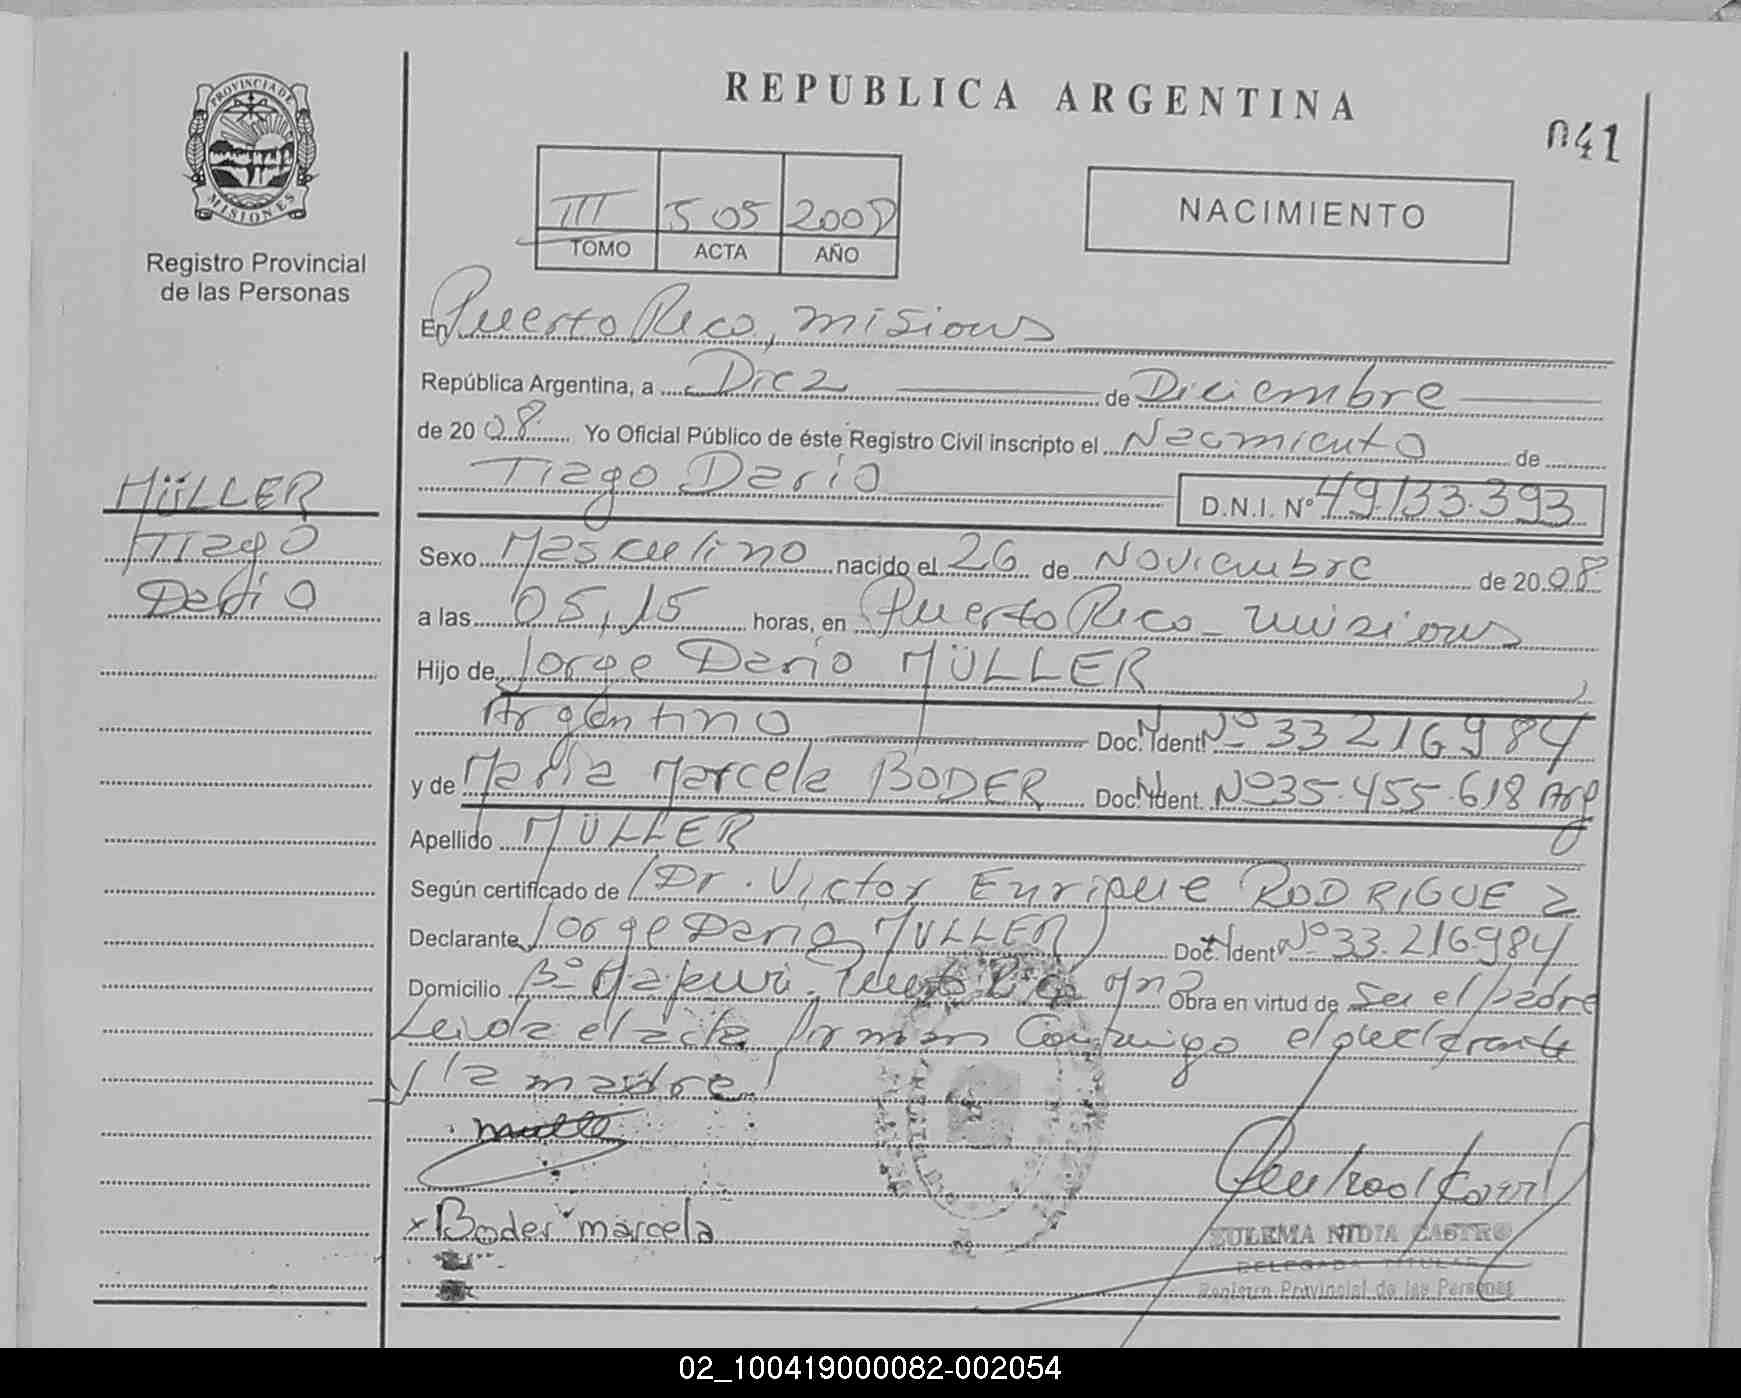 PROVINCIA DE
MISIONES
Registro Provincial
de las Personas
MÜLLER
Tiago
Dario
REPUBLICA ARGENTINA
041
III 505 2008
TOMO ACTA AÑO
NACIMIENTO
En Puerto Rico, Misiones
República Argentina, a Diez de Diciembre
de 2008. Yo Oficial Público de éste Registro Civil inscripto el Nacimiento de
Tiago Dario D.N.I. Nº 49.133.393
Sexo Masculino nacido el 26 de Noviembre de 2008
a las 05,15 horas, en Puerto Rico - Misiones
Hijo de Jorge Dario MÜLLER
Argentino Doc. Ident. Nº 33 216984
y de Maria Marcela BODER Doc. Ident. Nº 35.455.618 Arg
Apellido MÜLLER
Según certificado de Dr. Victor Enrique RODRIGUEZ
Declarante Jorge Dario MÜLLER Doc. Ident Nº 33.216984
Domicilio Bº Puerto Rico Mnes Obra en virtud de Ser el padre
Leida el acta firman Conmigo el declarante
y la madre
x Boder marcela
ZULEMA NIDIA CASTRO
DELEGADA TITULAR
Registro Provincial de las Personas
02_100419000082-002054